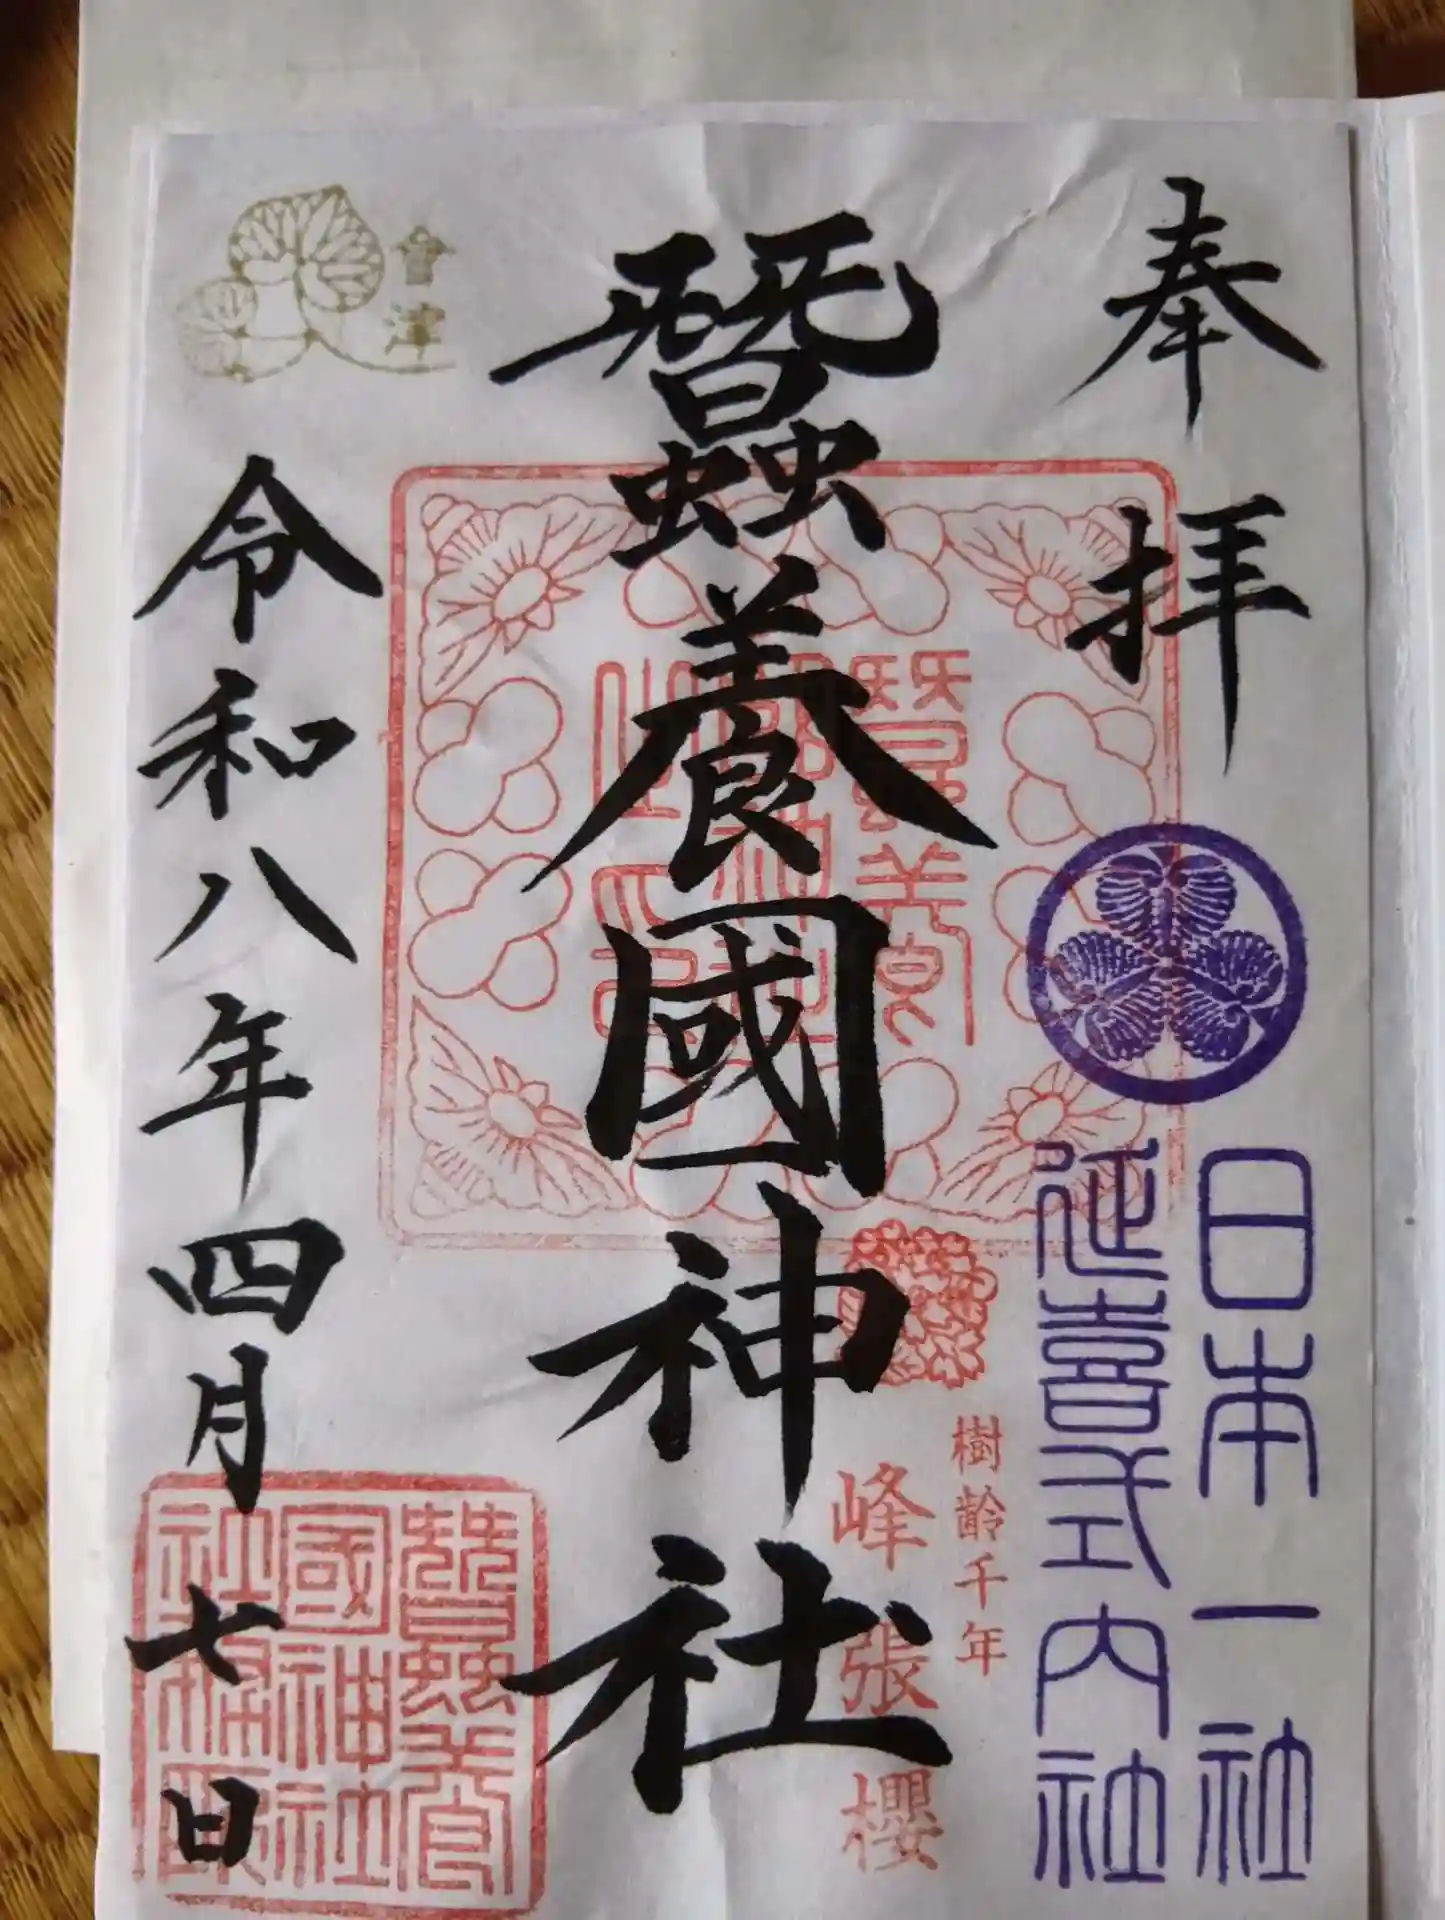 奉拝
日本一社
延喜式内社
樹齢千年
峰張櫻
蠶養國神社
會津
令和八年四月七日